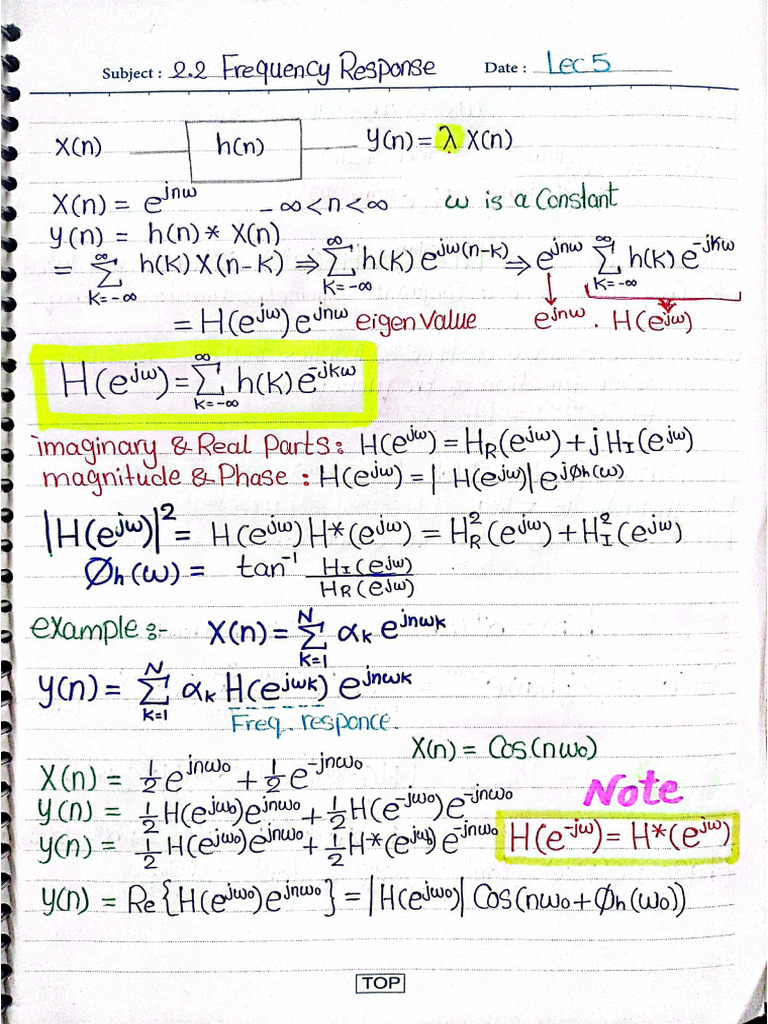 Subject : 2.2 Frequency Response Date : Lec 5
X(n) h(n) y(n) = λ X(n)
X(n) = e^{jnω} -∞<n<∞ ω is a Constant
y(n) = h(n) * X(n)
= ∑_{K=-∞}^{∞} h(K) X(n-K) ⇒ ∑_{K=-∞}^{∞} h(K) e^{jω(n-K)} ⇒ e^{jnω} ∑_{K=-∞}^{∞} h(K) e^{-jKω}
= H(e^{jω}) e^{jnω} eigen Value e^{jnω} . H(e^{jω})
H(e^{jω}) = ∑_{K=-∞}^{∞} h(K) e^{-jKω}
imaginary & Real Parts : H(e^{jω}) = H_R(e^{jω}) + j H_I(e^{jω})
magnitude & Phase : H(e^{jω}) = | H(e^{jω})| e^{jØh(ω)}
|H(e^{jω})|^2 = H(e^{jω}) H*(e^{jω}) = H_R^2(e^{jω}) + H_I^2(e^{jω})
Øh(ω) = tan^{-1} H_I(e^{jω}) / H_R(e^{jω})
example :- X(n) = ∑_{K=1}^{N} α_K e^{jnωK}
y(n) = ∑_{K=1}^{N} α_K H(e^{jωK}) e^{jnωK}
Freq. responce
X(n) = Cos(nω₀)
X(n) = 1/2 e^{jnω₀} + 1/2 e^{-jnω₀}
Note
y(n) = 1/2 H(e^{jω₀}) e^{jnω₀} + 1/2 H(e^{-jω₀}) e^{-jnω₀}
y(n) = 1/2 H(e^{jω₀}) e^{jnω₀} + 1/2 H*(e^{jω₀}) e^{-jnω₀}
H(e^{-jω}) = H*(e^{jω})
y(n) = Re{H(e^{jω₀}) e^{jnω₀}} = |H(e^{jω₀})| Cos(nω₀ + Øh(ω₀))
TOP